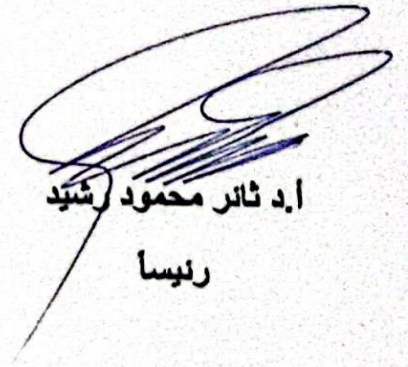 أ.د ثائر محمود رشيد
رئيساً